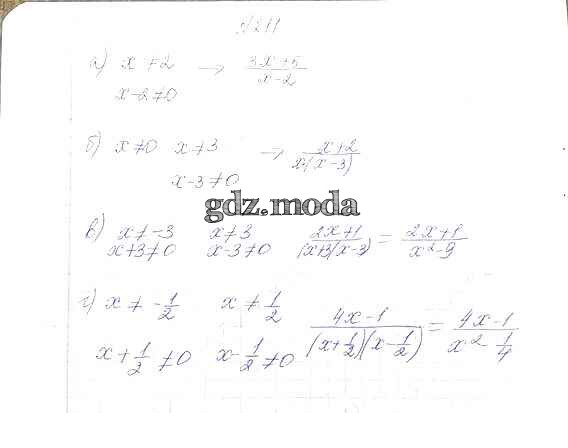 №211
а) x ≠ 2 → (3x+5)/(x-2)
x-2≠0
б) x≠0 x≠3 → (x+2)/(x·(x-3))
x-3≠0
gdz.moda
в) x≠-3 x≠3 (2x+1)/((x+3)(x-3)) = (2x+1)/(x²-9)
x+3≠0 x-3≠0
г) x ≠ -1/2 x ≠ 1/2 (4x-1)/((x+1/2)(x-1/2)) = (4x-1)/(x² 1/4)
x+1/2≠0 x-1/2≠0